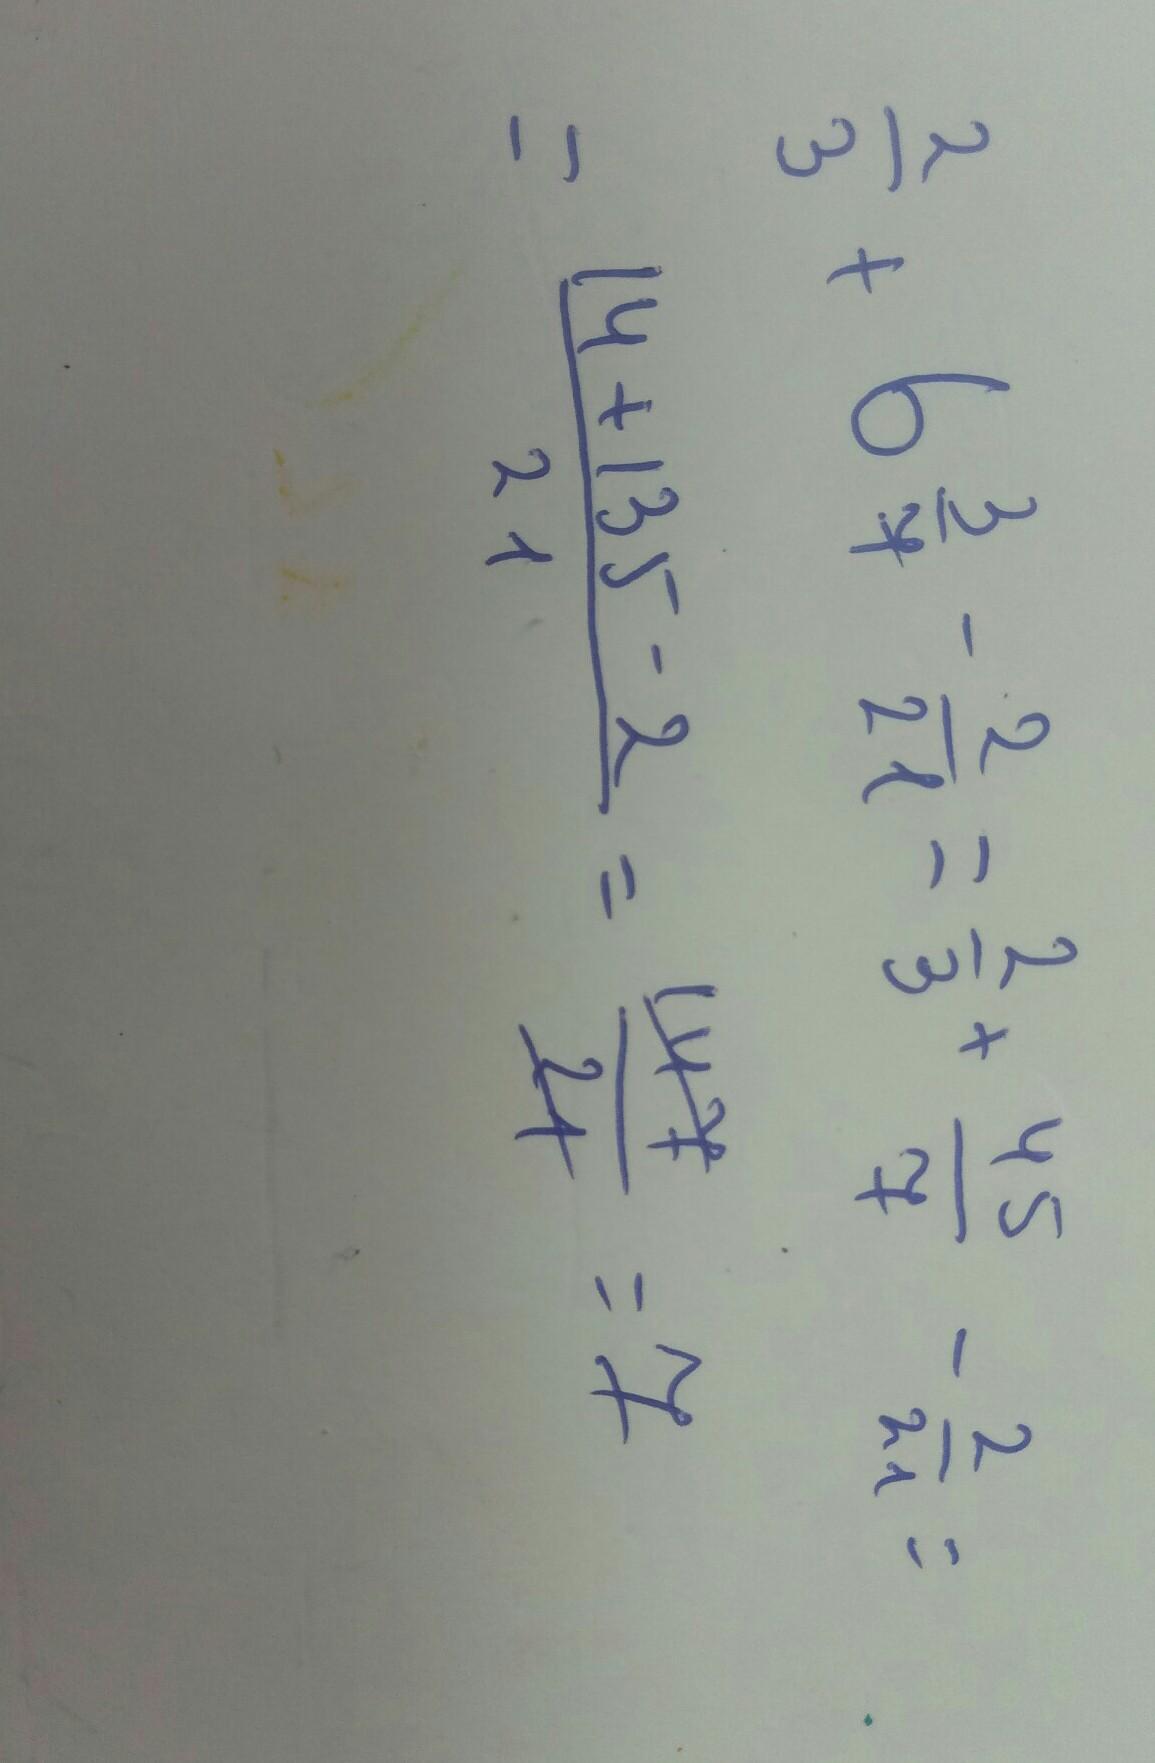 2/3 + 6 3/7 - 2/21 = 2/3 + 45/7 - 2/21 =
= (14 + 135 - 2)/21 = 147/21 = 7